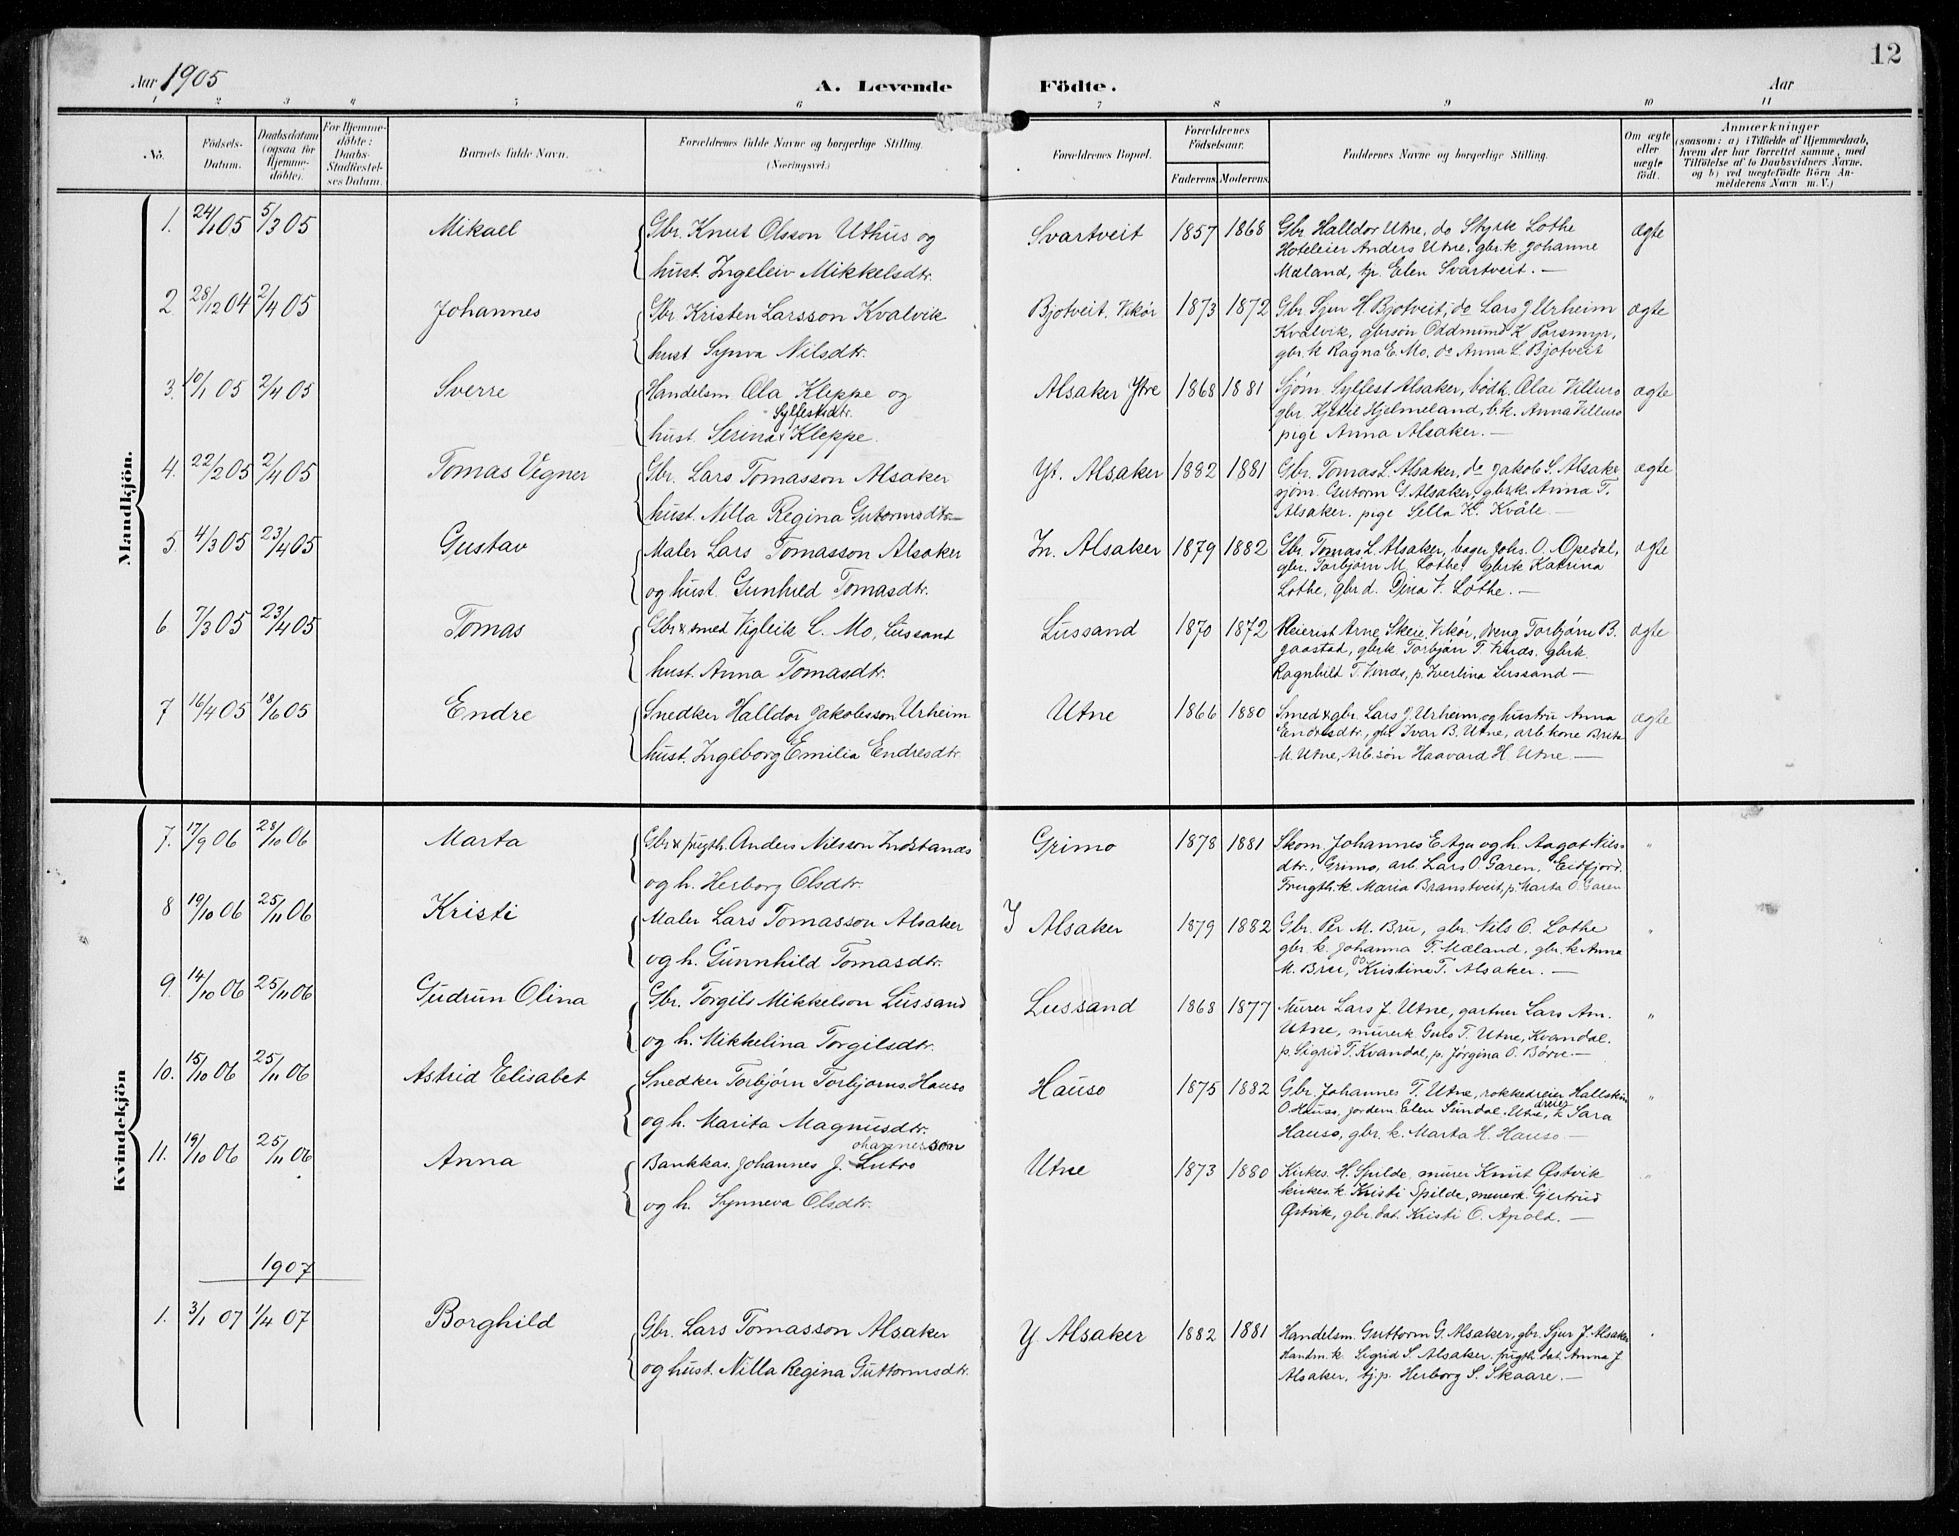 12
Aar 1905 A. Levende Födte. Aar
1 2 3 4 5 6 7 8 9 10 11
No. Födsels-Datum. Daabsdatum (ogsaa for Hjemme-döbte). For Hjemme-döbte: Daabs-Stadfæstel-ses Datum. Barnets fulde Navn. Forældrenes fulde Navne og borgerlige Stilling. (Næringsvei.) Forældrenes Bopæl. Forældrenes Födselsaar. Faderens. Moderens. Faddernes Navne og borgerlige Stilling. Om ægte eller uægte födt. Anmærkninger (saasom: a) i Tilfælde af Hjemmedaab, hvem der har forrettet samme, med Tilföielse af to Daabsvidners Navne, og b) ved uægtefödte Börn An-melderens Navn m. V.)
Mandkjön.
1. 24/1 05 5/3 05 Mikael Gbr. Knut Olsson Uthus og Svartveit 1857 1868 Gbr. Halldor Utne, do Styrk Lothe ægte
hust. Ingeleiv Mikkelsdtr. Hoteleier Anders Utne, gbr.k. Johanne
Mæland, tj. Elen Svartveit. —
2 28/12 04 2/4 05 Johannes Gbr Kristen Larsson Kvalvik Bjotveit, Vikør 1873 1872 Gbr. Sjur H. Bjotveit, do Lars J Urheim ægte
hust. Synva Nilsdtr. Kvalvik, gbrsøn Oddmund K Porsmyr,
gbr.k Ragna E. Mo, do Anna L. Bjotveit
3. 10/1 05 2/4 05 Sverre Handelsm Ola Kleppe og Alsaker Ytre 1868 1881 Sjøm. Sylfest Alsaker, bødk. Olai Villuro ægte
Sylfestsdtr.
hust. Serina Kleppe. gbr. Kjetil Hjelmeland, b.k. Anna Villuro
pige Anna Alsaker. —
4. 22/2 05 2/4 05 Tomas Vigner Gbr. Lars Tomasson Alsaker Yt. Alsaker 1882 1881 Gbr. Tomas L. Alsaker, do Jakob S. Alsaker ægte
hust. Nilla Regina Gutormsdtr sjøm. Gutorm G. Alsaker, gbrk. Anna T.
Alsaker. pige Sella K. Kvåle —
5 4/3 05 23/4 05 Gustav Maler Lars Tomasson Alsaker In. Alsaker 1879 1882 Gbr. Tomas L. Alsaker, bager Johs. O. Opedal, ægte
og hust. Gunhild Tomasdtr. gbr. Torbjørn M Lothe, gbrk Katrina
Lothe, gbr d. Dina V. Lothe. —
6. 7/3 05 23/4 05 Tomas Gbr & smed Vigleik L. Mo, Lussand Lussand 1870 1872 Meierist Arne Skeie, Vikør, Torbjørn B. ægte
hust. Anna Tomasdtr. gaastad, gbrk Torbjør T. Vinds, gbrk.
Ragnhild T. Vinds, p. Iverlina Lussand —
7 16/4 05 18/6 05 Endre Snedker Halldor Jakobsson Urheim Utne 1866 1880 Smed & gbr. Lars J. Urheim og hustru Anna ægte
hust. Ingeborg Emilia Endresdtr. Endresdtr., gbr Ivar B. Utne, arb. kone Brita
M. Utne, Arb. søn Haavard H. Utne —
Kvindekjön
7. 17/9 06 28/10 06 Marta Gbr & frugth. Anders Nilsson Indstands Grimo 1878 1881 Skom. Johannes E Aga og h. Aagot Nils- "
og h. Herborg Olsdtr. dtr., Grimo, arb. Lars O. Garen, Eidfjord.
Frugth.k. Maria Branstveit, p. Marta O. Garen
8 19/10 06 25/11 06 Kristi Maler Lars Tomasson Alsaker I Alsaker 1879 1882 Gbr. Per M. Bru, gbr. Nils O. Lothe "
og h. Gunnhild Tomasdtr. gbr. k. Johanna T. Mæland, gbr. k Anna
M. Bru, do Kristina T. Alsaker. —
9. 14/10 06 25/11 06 Gudrun Olina Gbr. Torgils Mikkelson Lussand Lussand 1868 1877 Murer Lars J. Utne, gartner Lars Am. "
og h. Mikkelina Torgilsdtr. Utne, murerk Guro T. Utne, Kvandal.
p. Sigrid T. Kvandal, p. Jørgina O. Børve —
10. 15/10 06 25/11 06 Astrid Elisabet Snedker Torbjørn Torbjørns. Hauso Hauso 1875 1882 Gbr. Johannes T. Utne, rokkedreier Hallstein "
og h. Marita Magnusdtr. O. Hauso, jordem. Elen Sundal. Utne, dreier k Sara
Hauso, gbr. k. Marta H. Hauso —
11. 19/10 06 25/11 06 Anna Bankkas. Johannes Johannesson Lutro Utne 1873 1880 Kirkes. H. Spilde, murer Knut Østvik "
og h. Synneva Olsdtr. kirkes.k. Kristi Spilde, murerk. Gjertrud
Østvik, gbr. dat. Kristi O. Apold. —
1907
1. 3/1 07 1/4 07 Borghild Gbr. Lars Tomasson Alsaker Y. Alsaker 1882 1881 Handelsm. Guttorm G. Alsaker, gbr. Sjur J. Alsaker "
og hust. Nilla Regina Guttormsdtr. Handm. k. Sigrid S. Alsaker. frugth. dat. Anna J
Alsaker, tj.p. Herborg S. Skaare. —